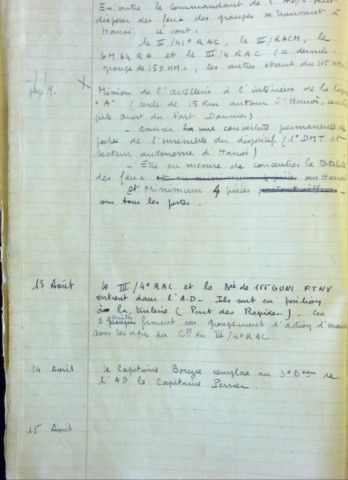 En outre le Commandant de l'A.D. peut
disposer des feux des groupes se trouvant à
Hanoï ce sont.
le II/41° RAC, le III/RACM, le
GM 64 RA et le III/4 RAC (ce dernier
groupe de 155 HM, les autres étant du 105 HM.
page 9.
X Mission de l'artillerie à l'intérieur de la ligne
"A" (cercle de 15 Km autour d'Hanoï,
côté ouest du Pont Doumer)
- assurer une couverture permanente des
postes de l'ensemble du dispositif (1° DMT et
secteur autonome d'Hanoï)
- Etre en mesure de concentrer la totalité
des feux sur Hanoï
et Minimum 4 pièces
sur tous les postes.
13 Août le III/4° RAC et la Bie de 155 GUN1 FTNV
entrent dans l'A.D. Ils sont en position
à la tuilerie (Pont des Rapides). Ces
2 unités forment un groupement d'action d'
sous les ordres du Ct du III/4° RAC.
14 Août le Capitaine remplace au 3° B
l'AD le Capitaine Perrier.
15 Août